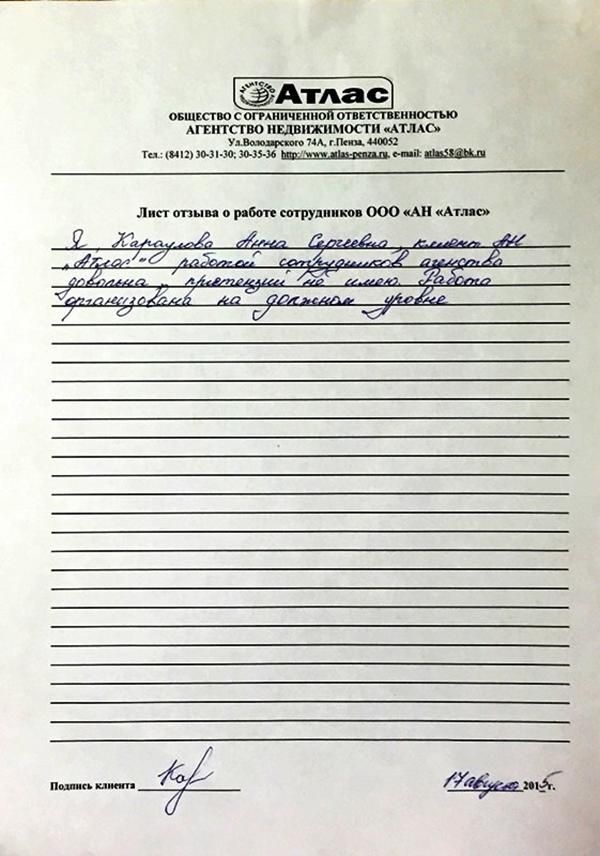 АГЕНТСТВО
Атлас
ОБЩЕСТВО С ОГРАНИЧЕННОЙ ОТВЕТСТВЕННОСТЬЮ
АГЕНТСТВО НЕДВИЖИМОСТИ «АТЛАС»
Ул.Володарского 74А, г.Пенза, 440052
Тел.: (8412) 30-31-30; 30-35-36 http://www.atlas-penza.ru, e-mail: atlas58@bk.ru
Лист отзыва о работе сотрудников ООО «АН «Атлас»
Я, Караулова Анна Сергеевна, клиент АН
„Атлас" работой сотрудников агенства
довольна, притензий не имею. Работа
организована на должном уровне
Подпись клиента Кар 17 августа 2015г.